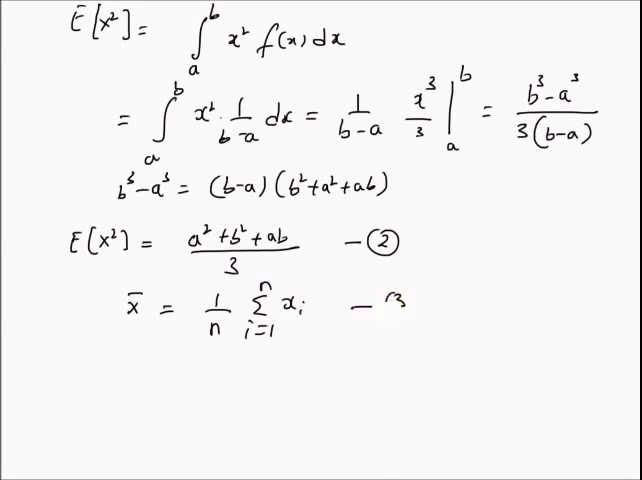 E[x²] = ∫ₐᵇ x² f(x) dx
= ∫ₐᵇ x² · 1/(b-a) dx = 1/(b-a) x³/3 |ₐᵇ = (b³-a³)/(3(b-a))
b³-a³ = (b-a)(b²+a²+ab)
E[x²] = (a²+b²+ab)/3 — ②
x̄ = 1/n Σᵢ₌₁ⁿ xᵢ — 3